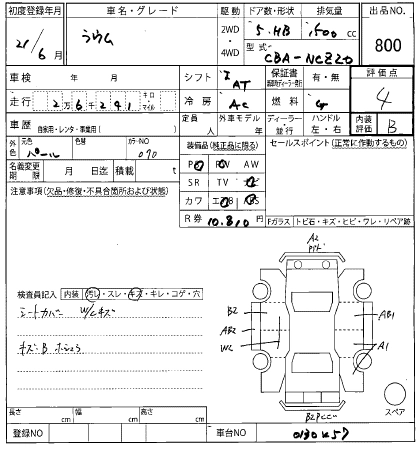 初度登録年月 車名・グレード 駆動 ドア数・形状 排気量 出品NO.
21/6月 ラウム 2WD 4WD 5.HB 1500cc 800
型式 CBA-NCZ20
車検 年 月 シフト AT 保証書 有・無 評価点 4
走行 2万6千291 キロ マイル 冷房 AC 燃料 G
車歴 自家用・レンタ・事業用( ) 定員 人 外車モデル 年 ディーラー・並行 ハンドル 左・右 内装評価 B
外色 元色 パール 色替 カラーNO 070 装備品(純正品に限る) セールスポイント(正常に作動するもの)
名義変更期限 月 日迄 積載 t PS PW AW
注意事項(欠品・修復・不具合箇所および状態) SR TV ナビ
カワ エアB ABS
R券 10.810 Fガラス トビ石・キズ・ヒビ・ワレ・リペア跡
A2
検査員記入 内装 汚れ・スレ・キズ・キレ・コゲ・穴
シートカバー W/Cキズ
キズ・B
B2
AB2
WC
AB1
A1
スペア
長さ cm 幅 cm 高さ cm
登録NO 車台NO 0130457